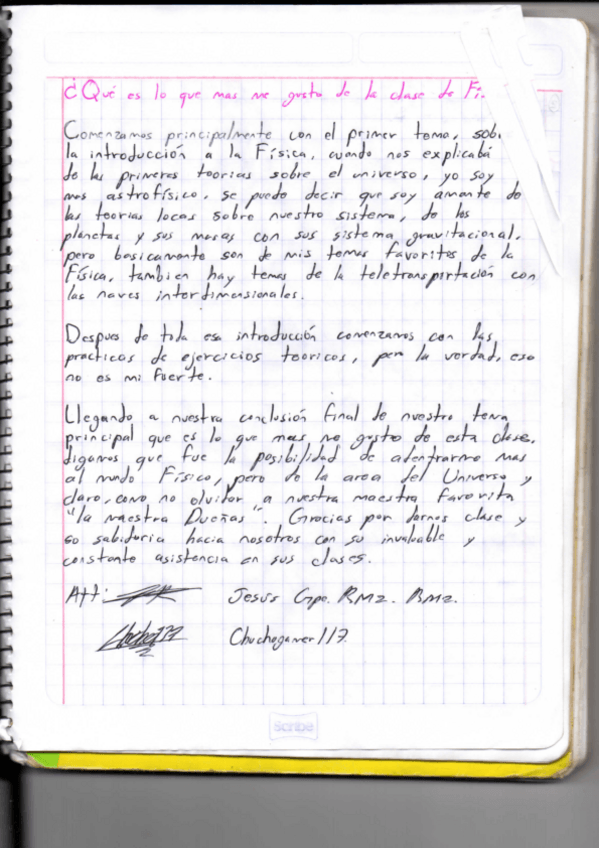 ¿Qué es lo que mas me gusto de la clase de Fí.
Comenzamos principalmente con el primer tema, sob
la introducción a la Física, cuando nos explicabá
de las primeras teorias sobre el universo, yo soy
mas astrofísico, se puede decir que soy amante de
las teorias locas sobre nuestro sistema, de los
planetas y sus masas con sus sistema gravitacional,
pero basicamente son de mis temas favoritos de la
Física, tambien hay temas de la teletransportación con
las naves interdimensionales.
Despues de toda esa introducción comenzamos con las
practicas de ejercicios teoricos, pero la verdad, eso
no es mi fuerte.
Llegando a nuestra conclusión final de nuestro tema
principal que es lo que mas me gusto de esta clase,
digamos que fue la posibilidad de adentrarme mas
al mundo Físico, pero de la area del Universo y
claro, como no olvidar a nuestra maestra favorita
"la maestra Dueñas". Gracias por darnos clase y
su sabiduria hacia nosotros con su invaluable y
constante asistencia en sus clases.
Att: Jesus Gpe. RMz. BMz.
Chuchogamer117.
Scribe